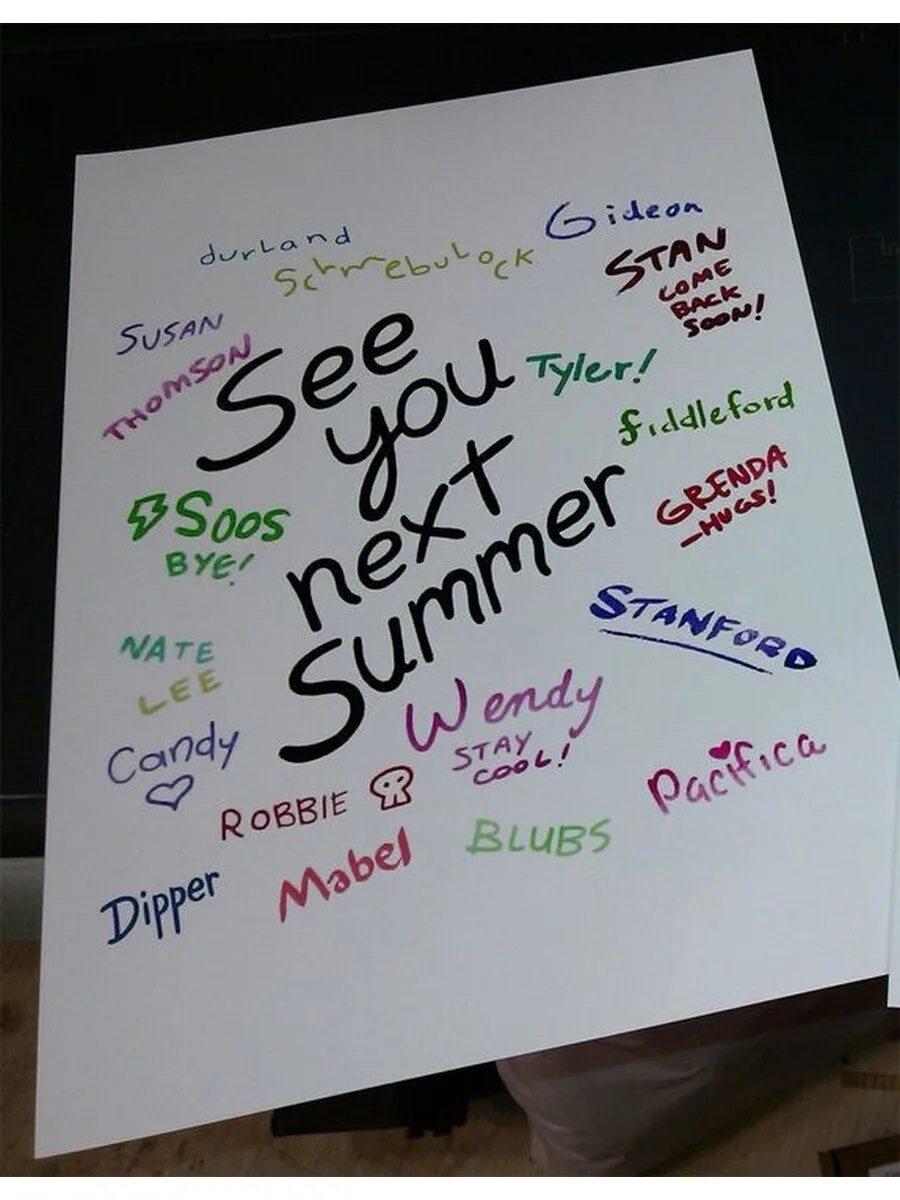 durland
Schmebulock
Gideon
STAN
COME
BACK
SOON!
SUSAN
THOMSON
See
you
next
Summer
Tyler!
fiddleford
GRENDA
-HUGS!
SOOS
BYE!
STANFORD
NATE
LEE
Candy
Wendy
STAY
COOL!
ROBBIE
Pacifica
BLUBS
Dipper
Mabel